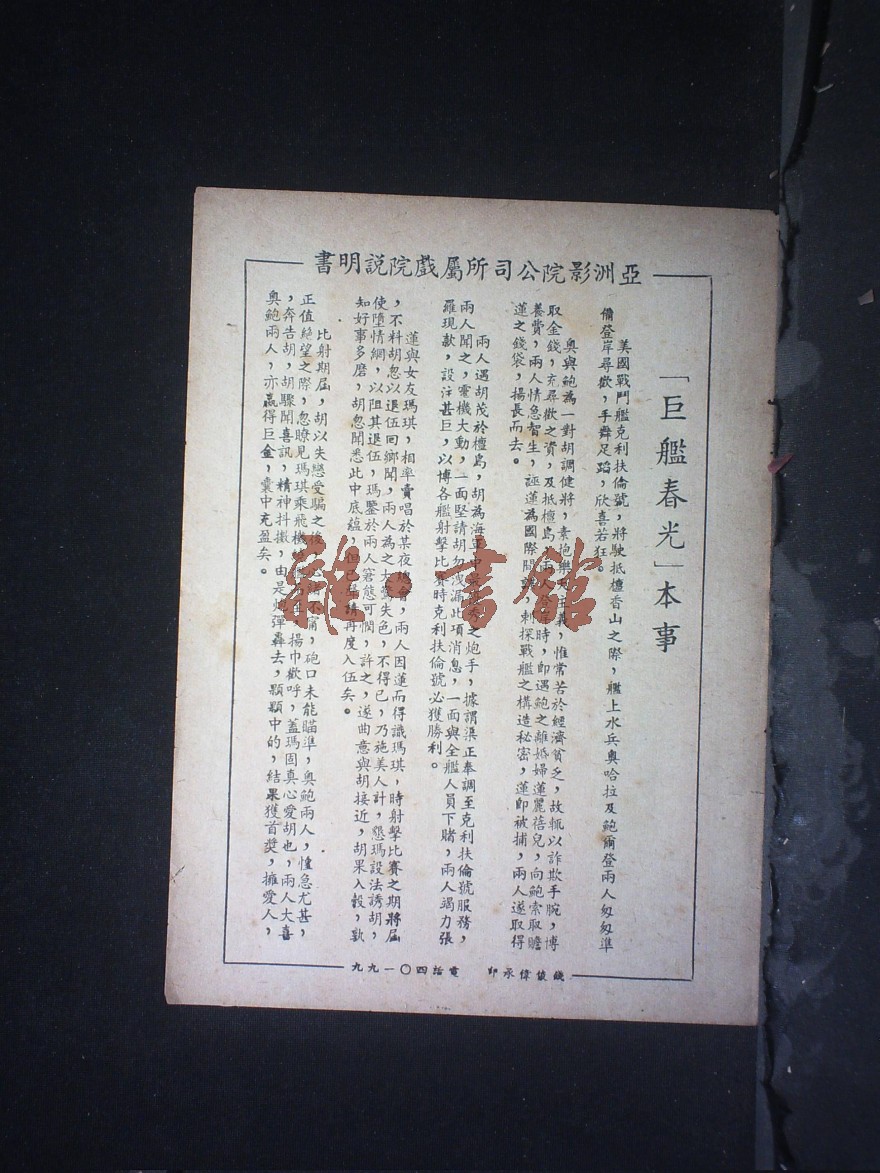 亞洲影院公司所屬戲院説明書
「巨艦春光」本事
美國戰鬥艦克利扶倫號，將駛抵檀香山之際，艦上水兵奧哈拉及鮑爾登兩人匆匆準
備登岸尋歡，手舞足蹈，欣喜若狂。
奧與鮑為一對胡調健將，素抱樂天主義，惟常苦於經濟貧乏，故輒以詐欺手腕，博
取金錢，充尋歡之資，及抵檀島，兩人登岸時，即遇鮑之離婚婦蓮麗蓓兒，向鮑索取贍
養費，兩人情急智生，誣蓮為國際間諜，刺探戰艦之構造秘密，蓮即被捕，兩人遂取得
蓮之錢袋，揚長而去。
兩人遇胡茂於檀島，胡為海軍中之炮手，據謂渠正奉調至克利扶倫號服務，
兩人聞之，靈機大動，一面堅請胡勿洩漏此項消息，一面與全艦人員下賭，兩人竭力張
羅現款，設注甚巨，以博各艦射擊比賽時克利扶倫號必獲勝利。
蓮與女友瑪琪，相率賣唱於某夜總會，兩人因蓮而得識瑪琪，時射擊比賽之期將屆
，不料胡忽以退伍回鄉聞，兩人為之大驚失色，不得已，乃施美人計，懇瑪設法誘胡，
使墮情網，以阻其退伍，瑪鑒於兩人窘態可憫，許之，遂曲意與胡接近，胡果入彀，孰
知好事多磨，胡忽聞悉此中底蘊，但已聲請再度入伍矣。
比射期屆，胡以失戀受騙之後，心緒不甯，砲口未能瞄準，奧鮑兩人，惶急尤甚，
正值絕望之際，忽瞭見瑪琪乘飛機，揚巾歡呼，蓋瑪固真心愛胡也，兩人大喜
，奔告胡，胡驟聞喜訊，精神抖擻，由是炮彈轟去，顆顆中的，結果獲首獎，擁愛人，
奧鮑兩人，亦贏得巨金，囊中充盈矣。
錢儀偉承印　電話四〇一九九
雜·書館